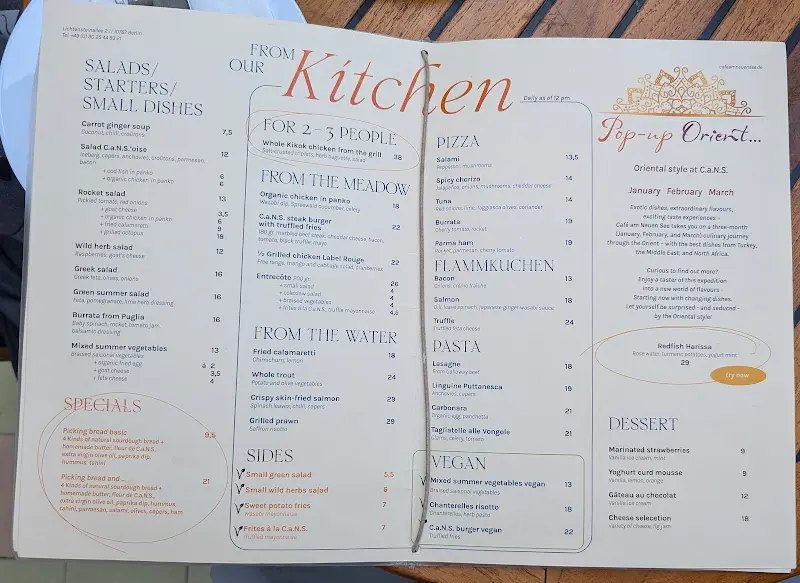 Lichtensteinallee 2 10787 Berlin
Tel. +49 (0) 30 25 44 93 21
SALADS/
STARTERS/
SMALL DISHES
Carrot ginger soup 7,5
Coconut, chili, croutons
Salad C.a.N.S.'oise 12
Iceberg, capers, anchovies, croutons, parmesan,
bacon
+ cod fish in panko 6
+ organic chicken in panko 6
Rocket salad 13
Pickled tomato, red onions
+ goat cheese 3,5
+ organic chicken in panko 6
+ fried calamaretti 9
+ grilled octopus 18
Wild herb salad 12
Raspberries, goat's cheese
Greek salad 16
Greek feta, olives, onions
Green summer salad 16
Feta, pomegranate, lime herb dressing
Burrata from Puglia 16
Baby spinach, rocket, tomato jam,
balsamic dressing
Mixed summer vegetables 13
Braised seasonal vegetables
+ organic fried egg à 2
+ goat cheese 3,5
+ feta cheese 4
SPECIALS
Picking bread basic 9,5
4 Kinds of natural sourdough bread +
homemade butter, fleur de C.a.N.S.,
extra virgin olive oil, paprika dip,
hummus, tahini
Picking bread and ... 21
4 Kinds of natural sourdough bread +
homemade butter, fleur de C.a.N.S.,
extra virgin olive oil, paprika dip, hummus,
tahini, parmesan, salami, olives, capers, ham
FROM
OUR
Kitchen
Daily as of 12 pm
FOR 2 – 3 PEOPLE
Whole Kikok chicken from the grill 38
Salt-crusted triplets, herb baguette, salad
FROM THE MEADOW
Organic chicken in panko 18
Wasabi dip, Spreewald cucumber, celery
C.a.N.S. steak burger
with truffled fries 22
180 gr. marbled beef steak, cheddar cheese, bacon,
tomato, black truffle mayo
½ Grilled chicken Label Rouge 22
Free range, mango and cabbage salad, cranberries
Entrecôte 200 gr. 26
+ small salad 4
+ coleslaw salad 4
+ braised vegetables 4
+ frites à la C.a.N.S., truffle mayonnaise 4,5
FROM THE WATER
Fried calamaretti 18
Chimichurri, lemon
Whole trout 24
Potato and olive vegetables
Crispy skin-fried salmon 29
Spinach leaves, chilli, capers
Grilled prawn 29
Saffron risotto
SIDES
Small green salad 5,5
Small wild herbs salad 6
Sweet potato fries 7
wasabi mayonnaise
Frites à la C.a.N.S. 7
truffled mayonnaise
PIZZA
Salami 13,5
Pepperoni, mushrooms
Spicy chorizo 14
Jalapeños, onions, mushrooms, cheddar cheese
Tuna 14
Red onions, lime, Taggiasca olives, coriander
Burrata 19
Cherry tomato, rocket
Parma ham 19
rocket, parmesan, cherry tomato
FLAMMKUCHEN
Bacon 13
Onions, crème fraîche
Salmon 18
Dill, leave spinach, japanese ginger wasabi sauce
Truffle 24
Truffled feta cheese
PASTA
Lasagne 18
From Galloway beef
Linguine Puttanesca 19
Anchovies, capers
Carbonara 21
Organic egg, panchetta
Tagliatelle alle Vongole 21
Clams, celery, tomato
VEGAN
Mixed summer vegetables vegan 13
Braised seasonal vegetables
Chanterelles risotto 18
Chantarelles, herb pesto
C.a.N.S. burger vegan 22
Truffled fries
cafeamneuensee.de
Pop-up Orient...
Oriental style at C.a.N.S.
January February March
Exotic dishes, extraordinary flavours,
exciting taste experiences –
Café am Neuen See takes you on a three-month
(January, February, and March) culinary journey
through the Orient – with the best dishes from Turkey,
the Middle East, and North Africa.
Curious to find out more?
Enjoy a taste of this expedition
into a new world of flavours –
Starting now with changing dishes.
Let yourself be surprised – and seduced –
by the Oriental style!
Redfish Harissa
Rose water, turmeric potatoes, yogurt mint
29
try now
DESSERT
Marinated strawberries 9
Vanilla ice cream, mint
Yoghurt curd mousse 9
Vanilla, lemon, orange
Gâteau au chocolat 12
Vanilla ice cream
Cheese selecetion 18
variety of cheese, fig jam